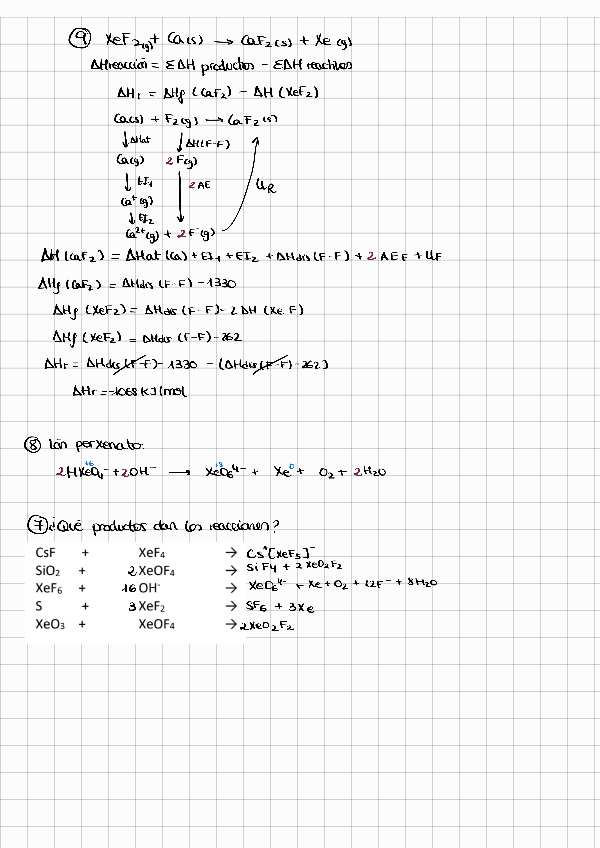 9 XeF2(g) + Ca(s) → CaF2(s) + Xe(g)
ΔHreacción = ΣΔH productos - ΣΔH reactivos
ΔHr = ΔHf (CaF2) - ΔH (XeF2)
Ca(s) + F2(g) → CaF2(s)
↓ΔHat ↓ΔH(F-F)
Ca(g) 2F(g)
↓EI1 ↓2AE UR
Ca+(g)
↓EI2
Ca2+(g) + 2F-(g)
ΔH (CaF2) = ΔHat (Ca) + EI1 + EI2 + ΔHdis (F-F) + 2 AE F + UF
ΔHf (CaF2) = ΔHdis (F-F) - 1330
ΔHf (XeF2) = ΔHdis (F-F) - 2 ΔH (Xe-F)
ΔHf (XeF2) = ΔHdis (F-F) - 262
ΔHr = ΔHdis (F-F) - 1330 - (ΔHdis (F-F) - 262)
ΔHr = -1068 KJ/mol
8 Ión perxenato.
+6 +8 0
2HXeO4- + 2OH- → XeO6 4- + Xe + O2 + 2H2O
7 ¿Qué productos dan las reacciones?
CsF + XeF4 → Cs+[XeF5]-
SiO2 + 2XeOF4 → SiF4 + 2XeO2F2
XeF6 + 16 OH- → XeO6 4- + Xe + O2 + 12F- + 8H2O
S + 3 XeF2 → SF6 + 3Xe
XeO3 + XeOF4 → 2XeO2F2